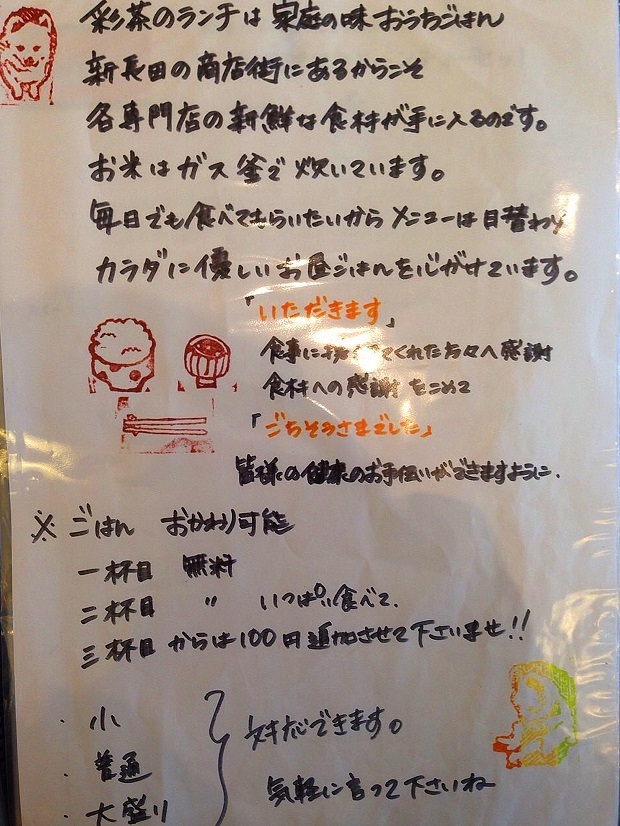 彩茶のランチは家庭の味おうちごはん
新長田の商店街にあるからこそ
各専門店の新鮮な食材が手に入るのです。
お米はガス釜で炊いています。
毎日でも食べてもらいたいからメニューは日替わり
カラダに優しいお昼ごはんを心がけています。
「いただきます」
食事に くれた方々へ感謝
食材への感謝をこめて
「ごちそうさまでした」
皆様の健康のお手伝いができますように.
※ごはん おかわり可能
一杯目 無料
二杯目 〃 いっぱい食べて.
三杯目からは100円追加させて下さいませ!!
・小
・普通
・大盛り
対応できます。
気軽に言って下さいね